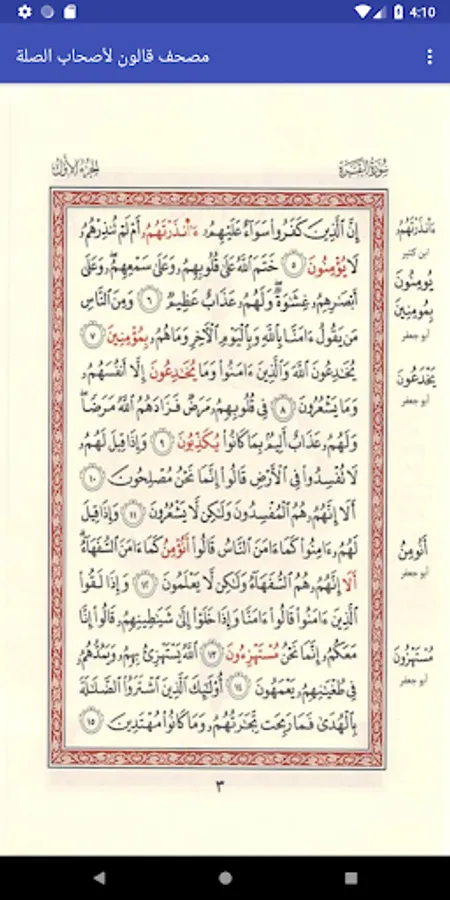 4:10
مصحف قالون لأصحاب الصلة
سُورَةُ البَقَرَةِ
الجزء الأول
إِنَّ الَّذِينَ كَفَرُوا سَوَآءٌ عَلَيْهِمُۥٓ ءَا۬نذَرْتَهُمُۥٓ أَمْ لَمْ تُنذِرْهُمُۥ
لَا يُؤْمِنُونَ ٥ خَتَمَ اللَّهُ عَلَىٰ قُلُوبِهِمُۥ وَعَلَىٰ سَمْعِهِمُۥ وَعَلَىٰٓ
أَبْصَٰرِهِمُۥ غِشَٰوَةٌ وَلَهُمُۥ عَذَابٌ عَظِيمٌ ٦ وَمِنَ النَّاسِ
مَن يَقُولُ ءَامَنَّا بِاللَّهِ وَبِالْيَوْمِ الْأَخِرِ وَمَا هُمُۥ بِمُؤْمِنِينَ ٧
يُخَٰدِعُونَ اللَّهَ وَالَّذِينَ ءَامَنُوا وَمَا يُخَٰدِعُونَ إِلَّآ أَنفُسَهُمُۥ
وَمَا يَشْعُرُونَ ٨ فِي قُلُوبِهِمُۥ مَرَضٌ فَزَادَهُمُ اللَّهُ مَرَضًا
وَلَهُمُۥ عَذَابٌ أَلِيمٌۢ بِمَا كَانُوا يُكَذِّبُونَ ٩ وَإِذَا قِيلَ لَهُمُۥ
لَا تُفْسِدُوا فِي الْأَرْضِ قَالُوٓا إِنَّمَا نَحْنُ مُصْلِحُونَ ١٠
أَلَآ إِنَّهُمُۥ هُمُ الْمُفْسِدُونَ وَلَٰكِن لَّا يَشْعُرُونَ ١١ وَإِذَا قِيلَ
لَهُمُۥٓ ءَامِنُوا كَمَآ ءَامَنَ النَّاسُ قَالُوٓا أَنُؤْمِنُ كَمَآ ءَامَنَ السُّفَهَآءُ
أَلَآ إِنَّهُمُۥ هُمُ السُّفَهَآءُ وَلَٰكِن لَّا يَعْلَمُونَ ١٢ وَإِذَا لَقُوا
الَّذِينَ ءَامَنُوا قَالُوٓا ءَامَنَّا وَإِذَا خَلَوْا إِلَىٰ شَيَٰطِينِهِمُۥ قَالُوٓا إِنَّا
مَعَكُمُۥٓ إِنَّمَا نَحْنُ مُسْتَهْزِءُونَ ١٣ اللَّهُ يَسْتَهْزِئُ بِهِمُۥ وَيَمُدُّهُمُۥ
فِي طُغْيَٰنِهِمُۥ يَعْمَهُونَ ١٤ أُوْلَٰٓئِكَ الَّذِينَ اشْتَرَوُا الضَّلَٰلَةَ
بِالْهُدَىٰ فَمَا رَبِحَت تِّجَٰرَتُهُمُۥ وَمَا كَانُوا مُهْتَدِينَ ١٥
ءَا۬نذَرْتَهُمُۥ
ابن كثير
يُومِنُونَ
بِمُومِنِينَ
أبو جعفر
يَخْدَعُونَ
أبو جعفر
أَنُومِنُ
أبو جعفر
مُسْتَهْزُونَ
أبو جعفر
٣